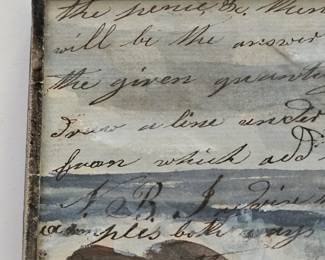 the pence &c. then
will be the answer
the given quantity
draw a line under
from which add
N. B. I advise
examples both ways